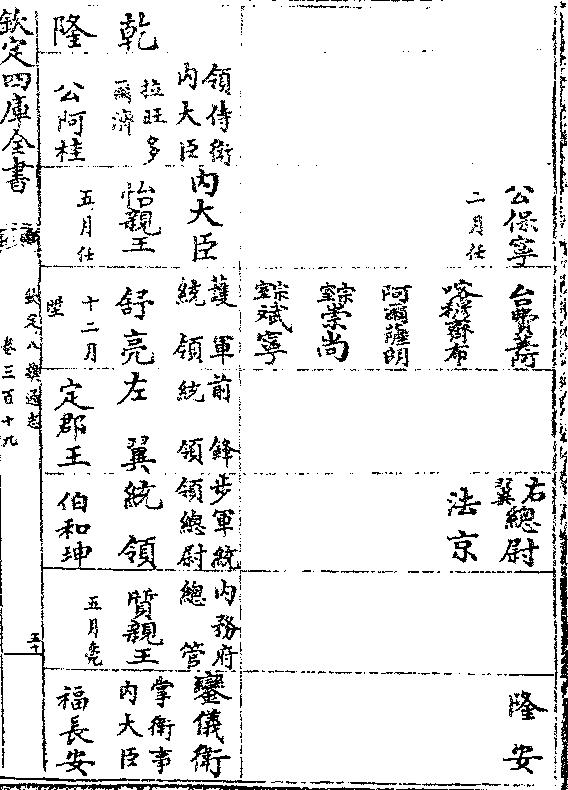 乾
隆
領侍衛
內大臣
拉旺多
爾濟
公阿桂
公保寧
二月任
內大臣
怡親王
五月任
台費蔭
喀穆齊布
阿爾薩朗
宗室崇尚
宗室斌寧
護軍
統領
舒亮
十二月
陞
前鋒
統領
左翼
定郡王
右翼總尉
法京
步軍統
領總尉
統領
伯和珅
內務府
總管
質親王
五月
隆安
鑾儀衛
掌衛事
內大臣
福長安
欽定四庫全書
欽定八旗通志
卷三百十九
五十